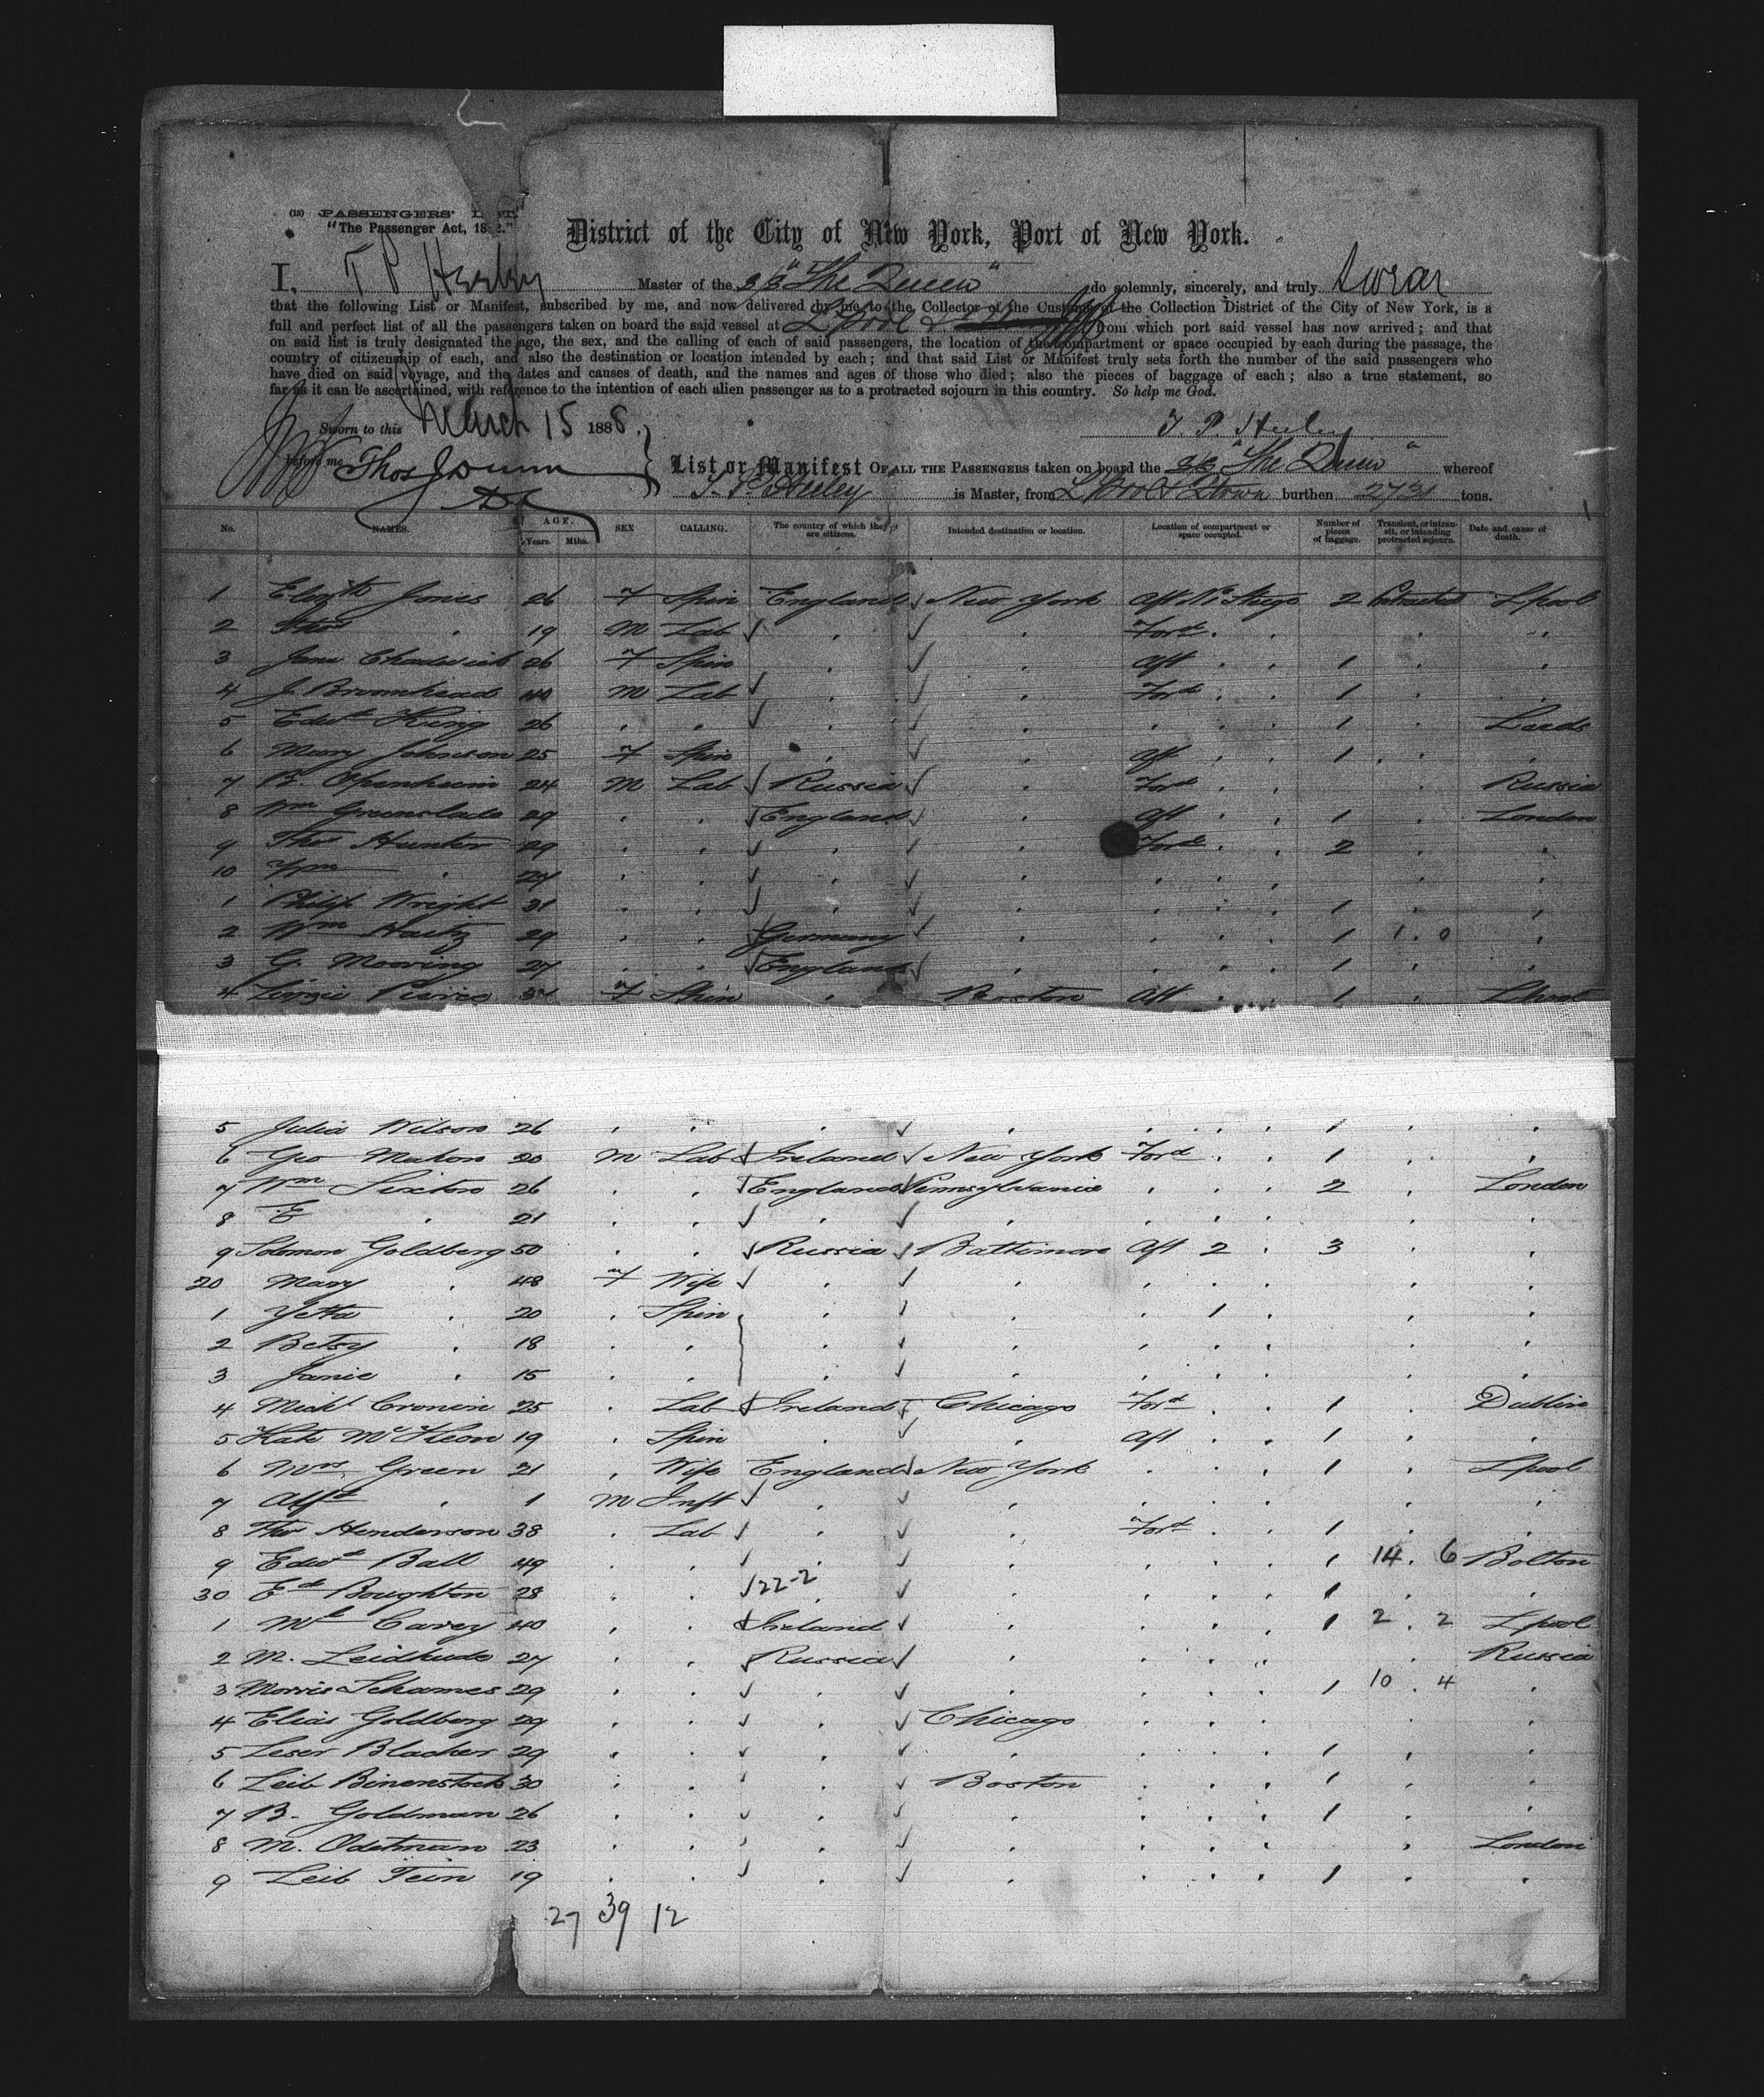 (18) PASSENGERS' LIST.
"The Passenger Act, 1882."
District of the City of New York, Port of New York.
I, T P Heeley Master of the S/S "The Queen" do solemnly, sincerely, and truly swear
that the following List or Manifest, subscribed by me, and now delivered by me to the Collector of the Customs of the Collection District of the City of New York, is a
full and perfect list of all the passengers taken on board the said vessel at L'pool & from which port said vessel has now arrived; and that
on said list is truly designated the age, the sex, and the calling of each of said passengers, the location of the compartment or space occupied by each during the passage, the
country of citizenship of each, and also the destination or location intended by each; and that said List or Manifest truly sets forth the number of the said passengers who
have died on said voyage, and the dates and causes of death, and the names and ages of those who died; also the pieces of baggage of each; also a true statement, so
far as it can be ascertained, with reference to the intention of each alien passenger as to a protracted sojourn in this country. So help me God.
Sworn to this March 15 1888. T. P. Heeley
before me Thos J Dunn
List or Manifest OF ALL THE PASSENGERS taken on board the S/S "The Queen" whereof
T. P. Heeley is Master, from L'pool & Q'town burthen 2731 tons.
No. NAMES. AGE. Years. Mths. SEX CALLING. The country of which they are citizens. Intended destination or location. Location of compartment or space occupied. Number of pieces of baggage. Transient, or in transit, or intending protracted sojourn. Date and cause of death.
1 Elizth Jones 26 F Spin England New York Aft 2 Protracted L'pool
2 Thos . 19 M Lab . . Ford . . . .
3 Jane Chadwick 26 F Spin . . Aft . . 1 . .
4 J. Broomhead 40 M Lab . . Ford . . 1 . .
5 Edwd King 26 . . . . . . . 1 . Leeds
6 Mary Johnson 25 F Spin . . Aft . . 1 . .
7 B. Openheim 24 M Lab Russia . Ford . . . Russia
8 Wm Greenslade 29 . . England . Aft . . 1 . London
9 Thos Hunter 29 . . . . Ford . . 2 . .
10 Wm . 24 . . . . . . . . .
1 Philip Wright 31 . . . . . . . 1 . .
2 Wm Haitz 29 . . Germany . . . . 1 1 . 0 .
3 G. Mooring 27 . . England . . . . 1 . .
4 Lizzie Pierce 34 F Spin . Boston Aft . . 1 . L'pool
5 Julia Wilson 26 . . . . . . . 1 . .
6 Geo Maton 20 M Lab Ireland New York Ford . . 1 . .
7 Wm Sixton 26 . . England Pennsylvania . . . 2 . London
8 E . 21 . . . . . . . . .
9 Solomon Goldberg 50 . . Russia Baltimore Aft 2 . 3 . .
20 Mary . 48 F Wife . . . . . .
1 Yetta . 20 . Spin . . . 1 . .
2 Betsy . 18 . . . . . . . .
3 Janie . 15 . . . . . . . .
4 Michl Cronin 25 . Lab Ireland Chicago Ford . . 1 . Dublin
5 Kate McKeon 19 . Spin . . Aft . . 1 . .
6 Mrs Green 21 . Wife England New York . . . 1 . L'pool
7 Alfd . 1 M Inft . . . . . . .
8 Thos Henderson 38 . Lab . . Ford . . 1 . .
9 Edwd Ball 49 . . . . . . . 1 14 . 6 Bolton
30 Ed Boughton 28 . . 22-2 . . . . 1 . .
1 Ml Carey 40 . . Ireland . . . . 1 2 . 2 L'pool
2 M. Leidhude 27 . . Russia . . . . . Russia
3 Morris Schames 29 . . . . . . . 1 10 . 4 .
4 Elias Goldberg 29 . . . Chicago . . . . .
5 Leser Blacher 29 . . . . . . . 1 . .
6 Leib Binenstock 30 . . . Boston . . . 1 . .
7 B. Goldman 26 . . . . . . . 1 . .
8 M. Odetman 23 . . . . . . . . London
9 Leib Tein 19 . . . . . . . 1 . .
27 39 12